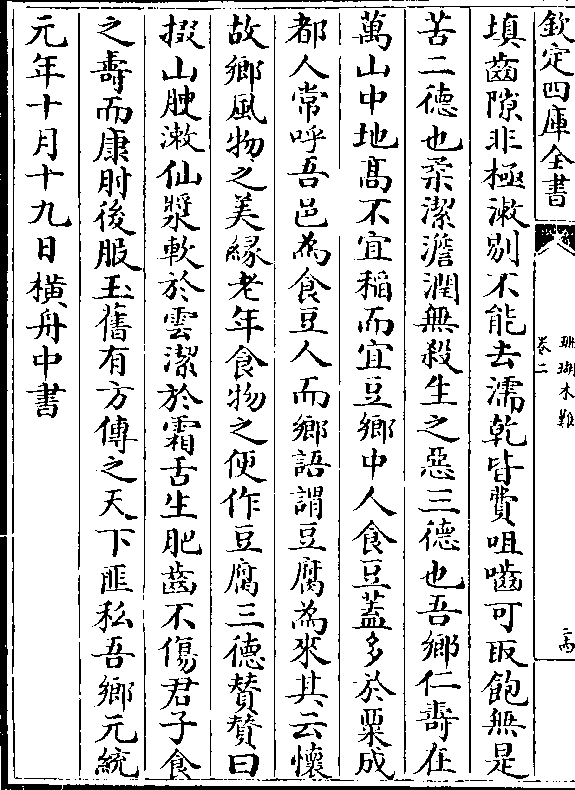 欽定四庫全書
珊瑚木難
卷二
填齒隙非極漱剔不能去濡乾皆費咀嚙可取飽無是
苦二德也柔潔澹潤無殺生之惡三德也吾鄉仁壽在
萬山中地髙不宜稻而宜豆鄉中人食豆蓋多於粟成
都人常呼吾邑為食豆人而鄉語謂豆腐為來其云懷
故鄉風物之美緣老年食物之便作豆腐三德賛賛曰
掇山腴漱仙漿軟於雲潔於霜舌生肥齒不傷君子食
之壽而康肘後服玉舊有方傳之天下匪私吾鄉元統
元年十月十九日橫舟中書